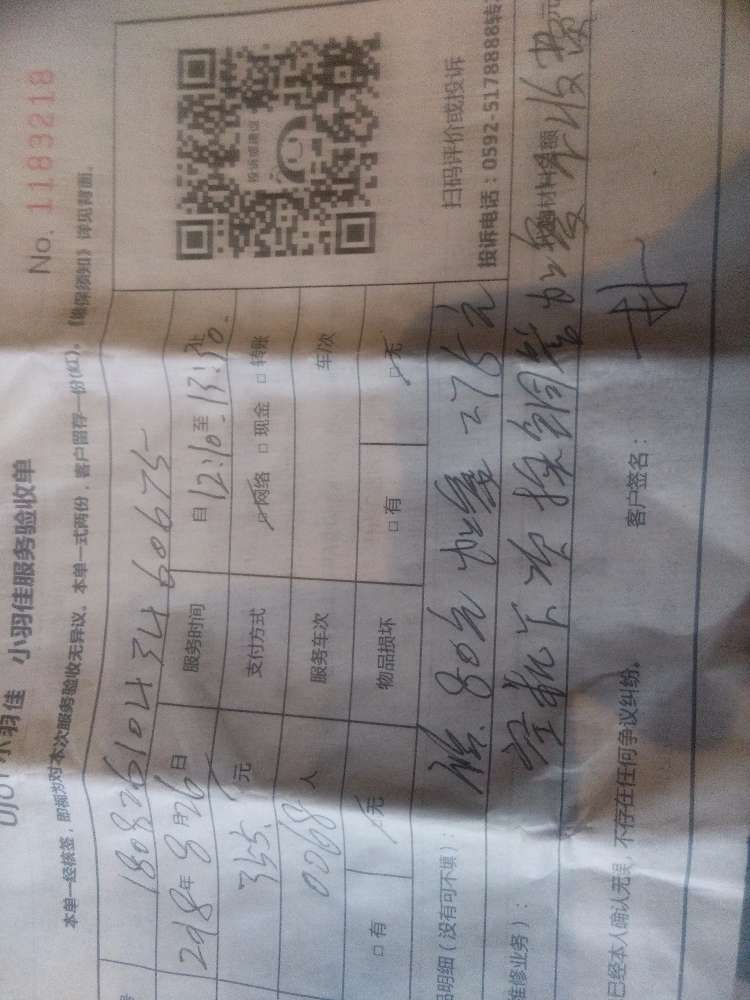 小羽佳 小羽佳服务验收单 No. 1183218
本单一经核签，即视为对本次服务验收无异议。本单一式两份，客户留存一份(红)。《确保须知》详见背面。
号 1808261043460675
2018年8月26日 服务时间 自12:10至13:30止
355元 支付方式 网络 □ 现金 □ 转账
0068人 服务车次 车次
□ 有 无 物品损坏 □ 有 □ 无
投诉或建议
扫码评价或投诉
投诉电话：0592-5178888转
品明细（没有可不填）： 80元 加氟 275元 材料金额 元
维修业务）： 空机下次 铜管加氟不收费
已经本人确认无误，不存在任何争议纠纷。 客户签名：